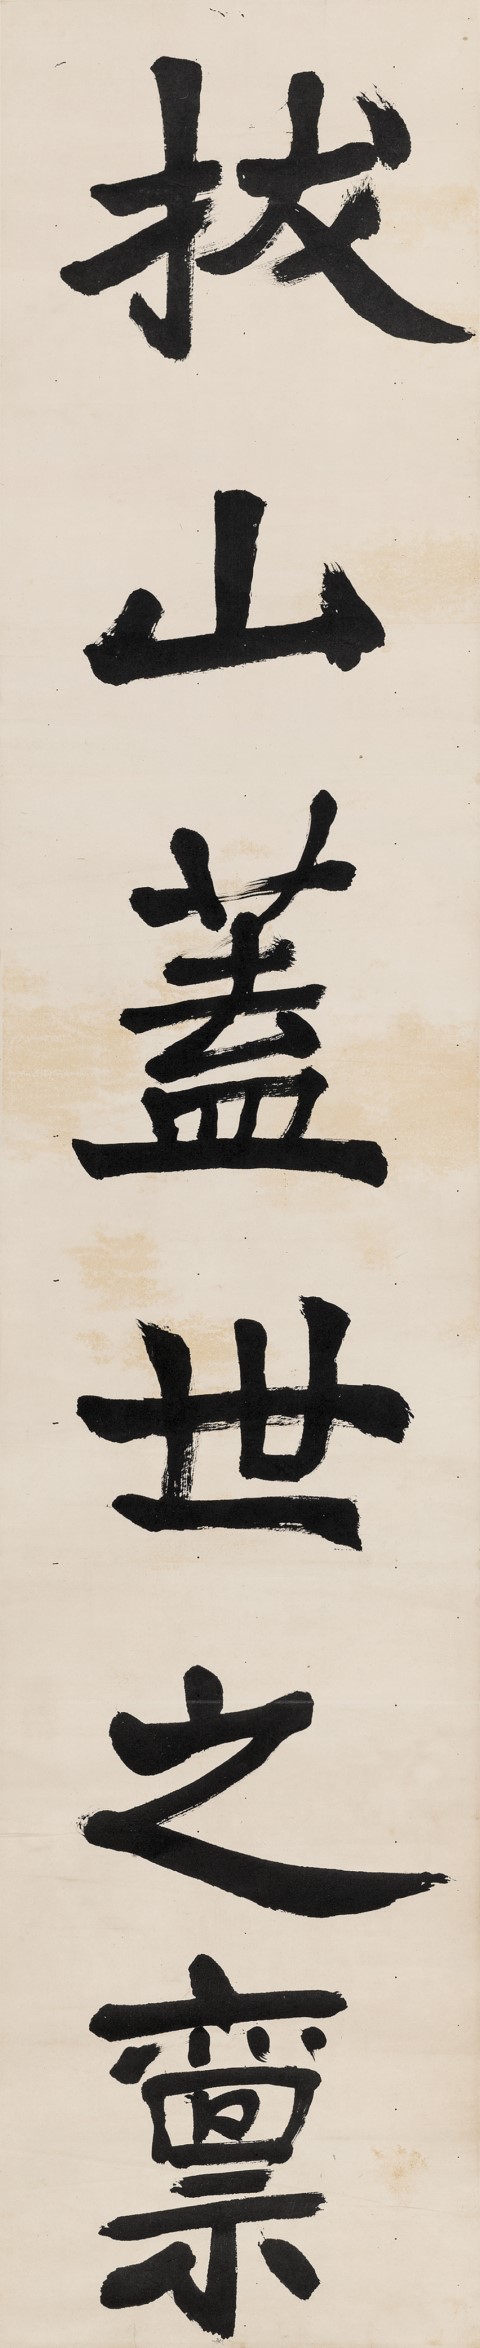 拔山蓋世之稟